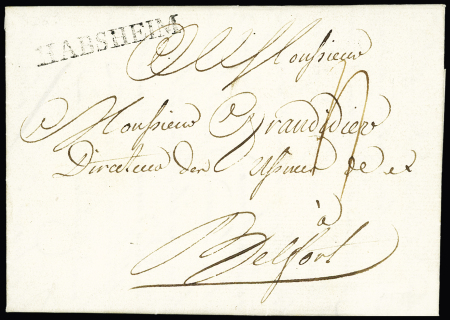 HABSHEIM
A Monsieur
Monsieur Grandidier
Directeur des Usines de et
à
Belfort